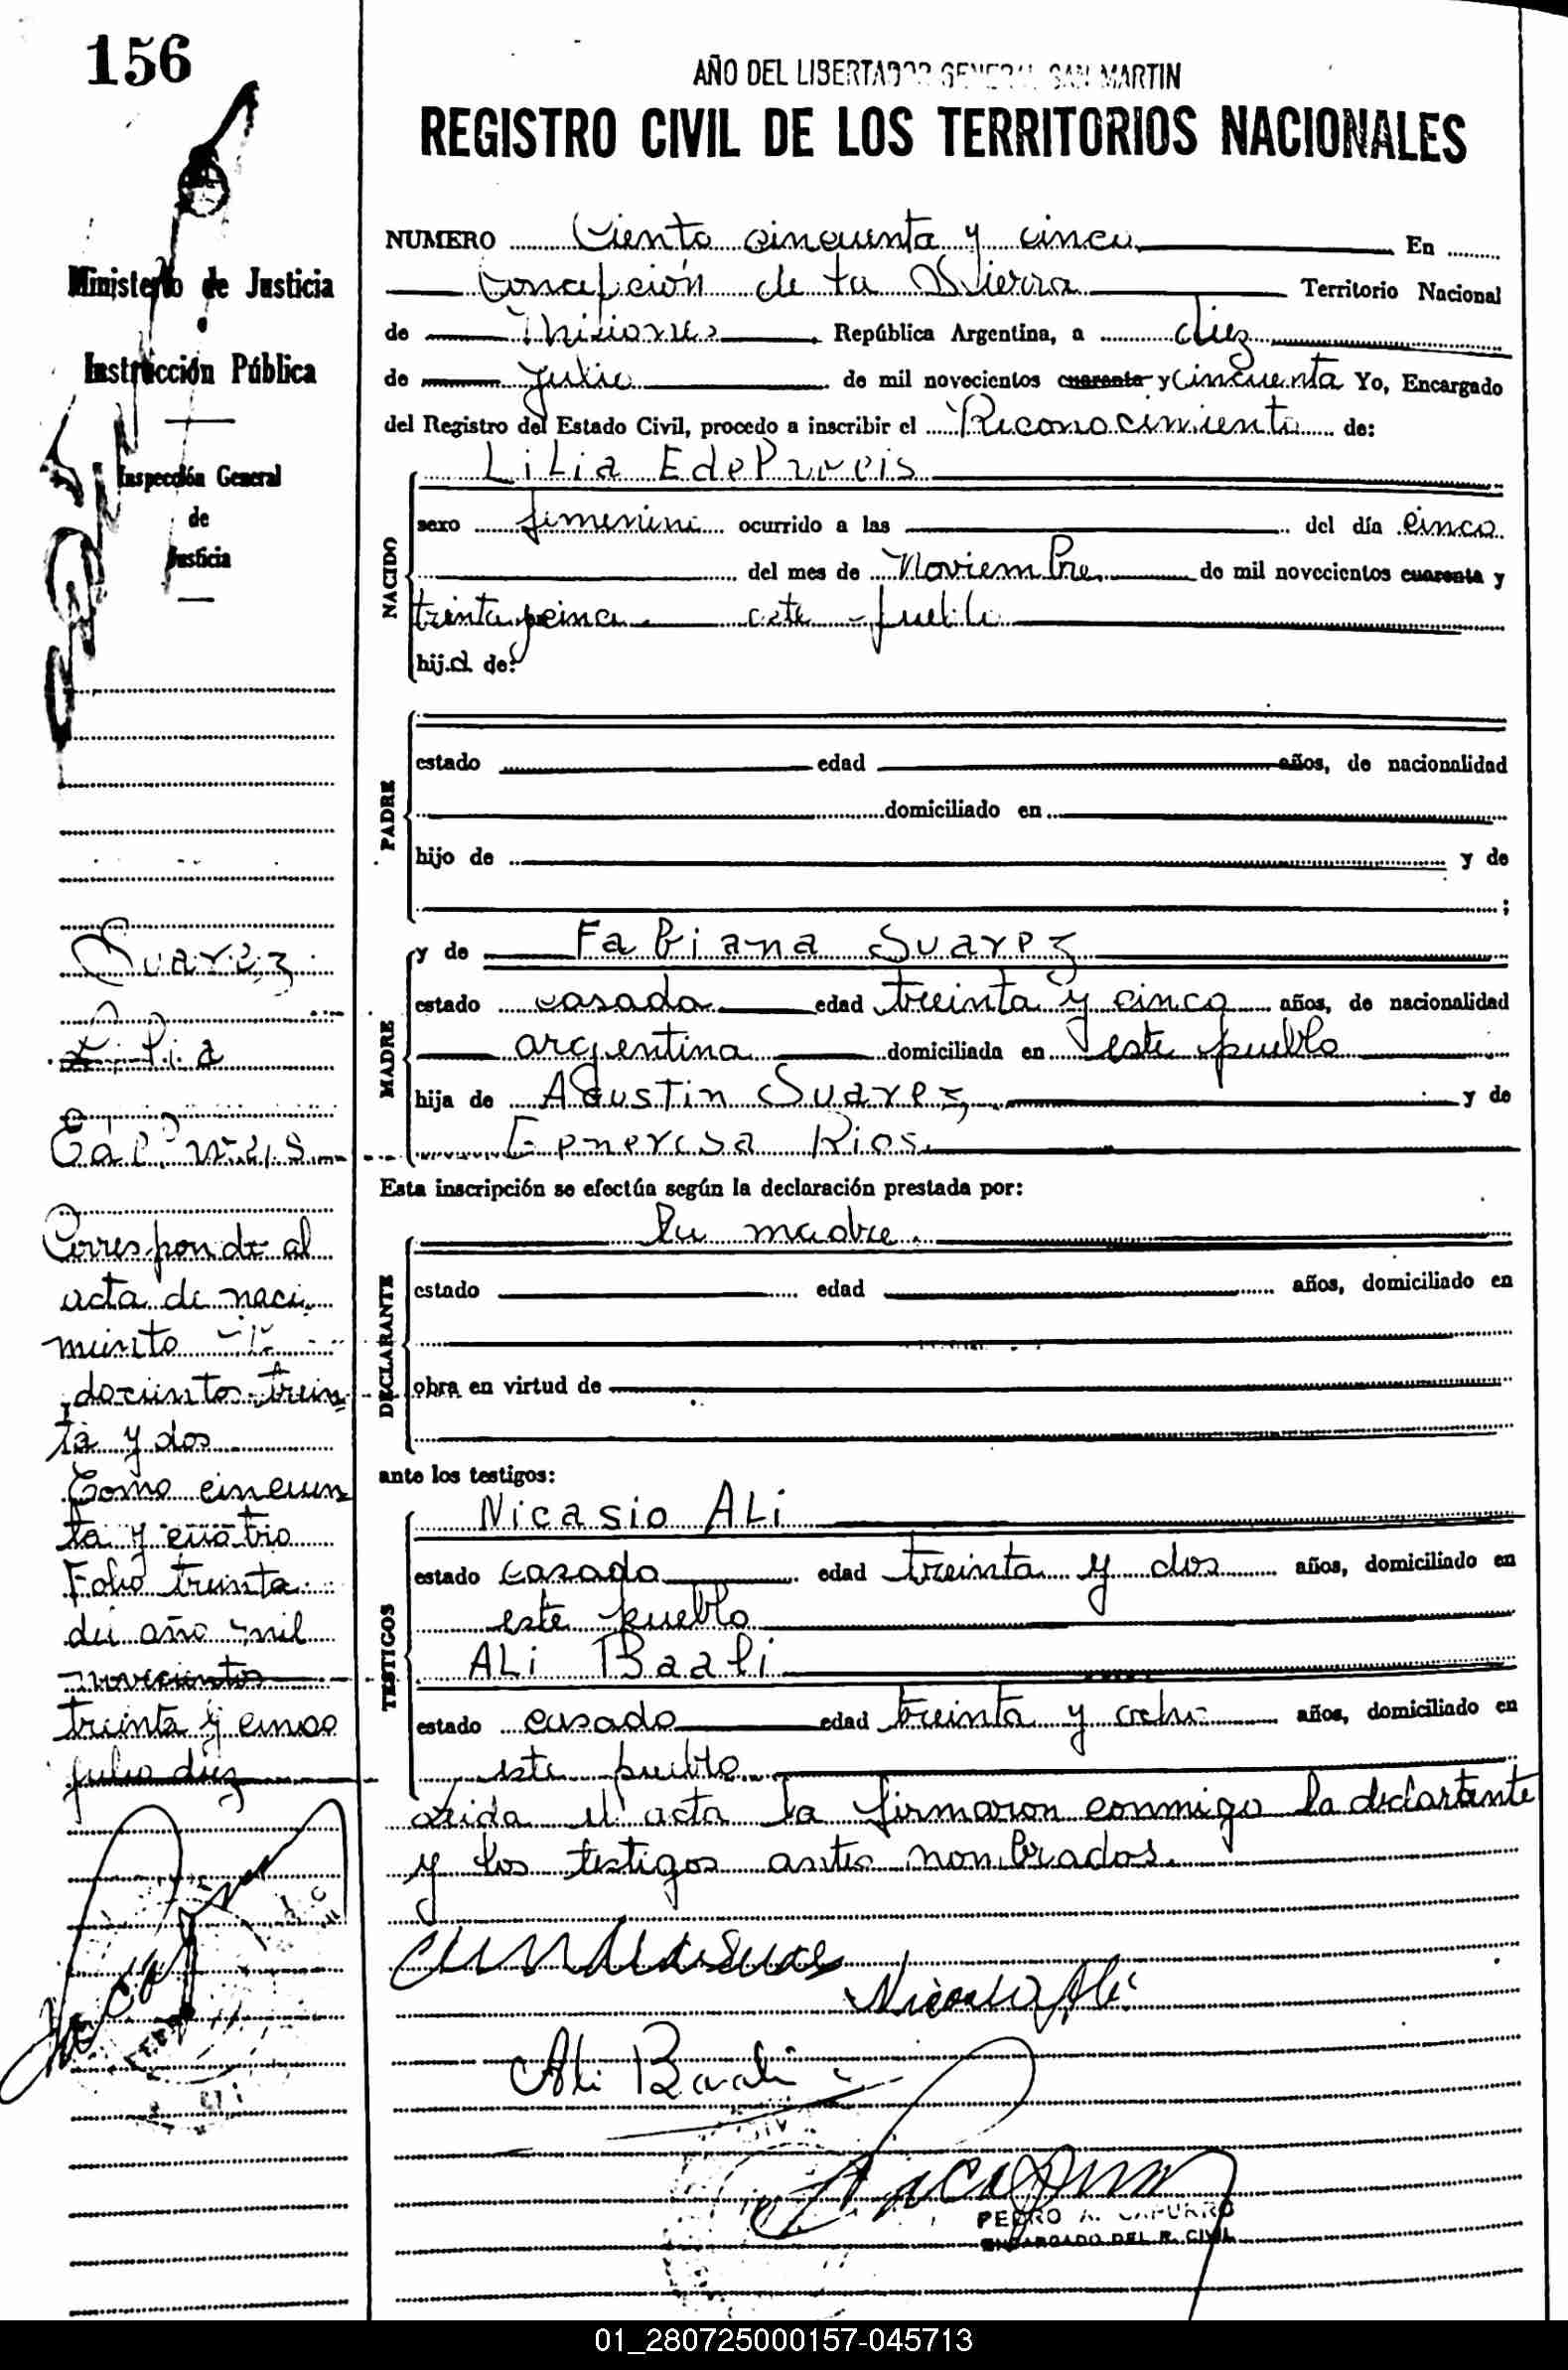 156
AÑO DEL LIBERTADOR GENERAL SAN MARTIN
REGISTRO CIVIL DE LOS TERRITORIOS NACIONALES
Ministerio de Justicia
Instrucción Pública
Inspección General
de
Justicia
NUMERO Ciento cincuenta y cinco En
Concepción de la Sierra Territorio Nacional
de Misiones República Argentina, a diez
de julio de mil novecientos cuarenta y cincuenta Yo, Encargado
del Registro del Estado Civil, procedo a inscribir el Reconocimiento de:
NACIDO
Lilia
sexo femenino ocurrido a las del día cinco
del mes de Noviembre de mil novecientos cuarenta y
treinta y cinco este pueblo
hija de:
PADRE
estado edad años, de nacionalidad
domiciliado en
hijo de y de
;
MADRE
y de Fabiana Suarez
estado casada edad treinta y cinco años, de nacionalidad
argentina domiciliada en este pueblo
hija de Agustin Suarez y de
Generosa Rios
Esta inscripción se efectúa según la declaración prestada por:
DECLARANTE
Su madre
estado edad años, domiciliado en
obra en virtud de
ante los testigos:
TESTIGOS
Nicasio Ali
estado casado edad treinta y dos años, domiciliado en
este pueblo
Ali Baali
estado casado edad treinta y ocho años, domiciliado en
este pueblo
Leida el acta la firmaron conmigo la declartante
y los testigos antes nombrados.
Suarez
Lilia
Corresponde al
acta de naci
miento
docientos trein
ta y dos
Tomo cincuen
ta y cuatro
Folio treinta
del año mil
novecientos
treinta y cinco
julio diez
Nicasio Ali
Ali Baali
PEDRO A. CAPURRO
ENCARGADO DEL R. CIVIL
01_280725000157-045713